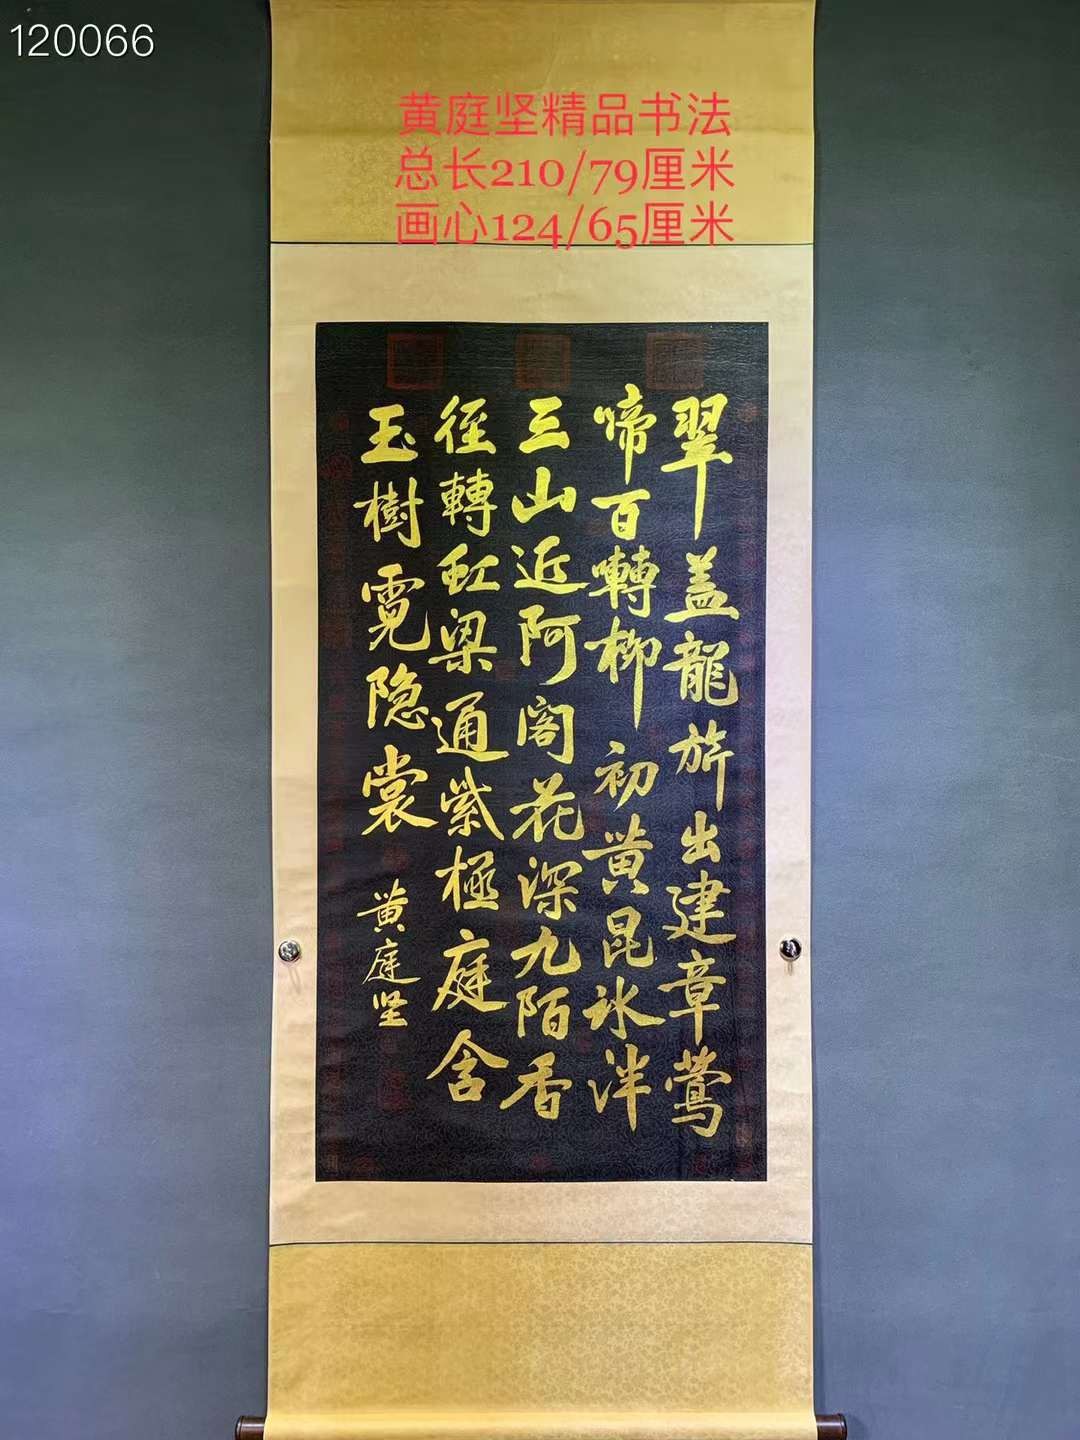 120066
黄庭坚精品书法
总长210/79厘米
画心124/65厘米
翠盖龍旂出建章鶯
啼百囀柳初黄昆氷泮
三山近阿閣花深九陌香
徑轉虹梁通紫極庭含
玉樹霓隐裳
黄庭坚